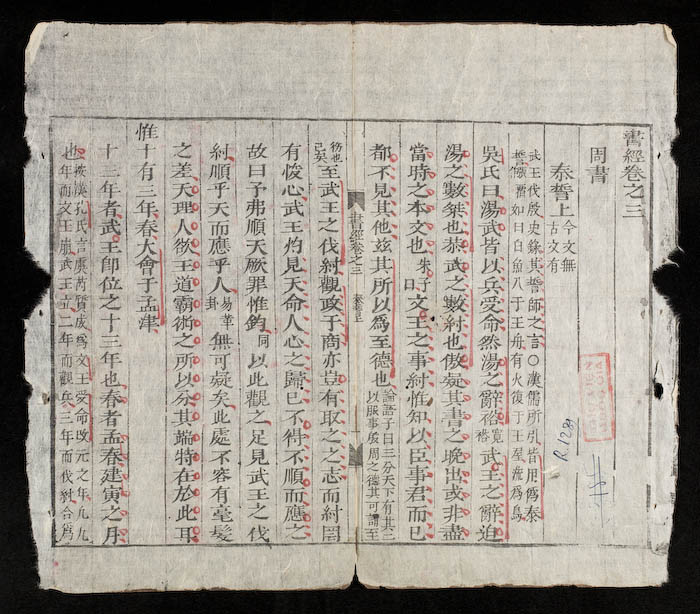 書經卷之三
周書
泰誓上
今文無
古文有
武王伐殷史錄其誓師之言○漢儒所引皆用為泰
誓 如曰白魚入于王舟有火復于王屋流為烏
吳氏曰湯武皆以兵受命然湯之辭裕寬裕武王之辭迫
湯之數桀也恭武之數紂也傲疑其書之晚出或非盡
當時之本文也朱子曰文王之事紂惟知以臣事君而已
都不見其他茲其所以為至德也論語子曰三分天下有其二
以服事殷周之德其可謂至
書經卷之三
泰誓上
德也
已矣
至武王之伐紂觀政于商亦豈有取之之志而紂罔
有悛心武王灼見天命人心之歸已不得不順而應之
故曰予弗順天厥罪惟鈞同以此觀之足見武王之伐
紂順乎天而應乎人易革卦無可疑矣此處不容有毫髮
之差天理人欲王道霸術之所以分其端特在於此耳
惟十有三年春大會于孟津
十三年者武王即位之十三年也春者孟春建寅之月
也 漢孔氏言虞芮質成為文王受命改元之年九
年而文王崩武王立二年而觀兵三年而伐紂合為
R.1289